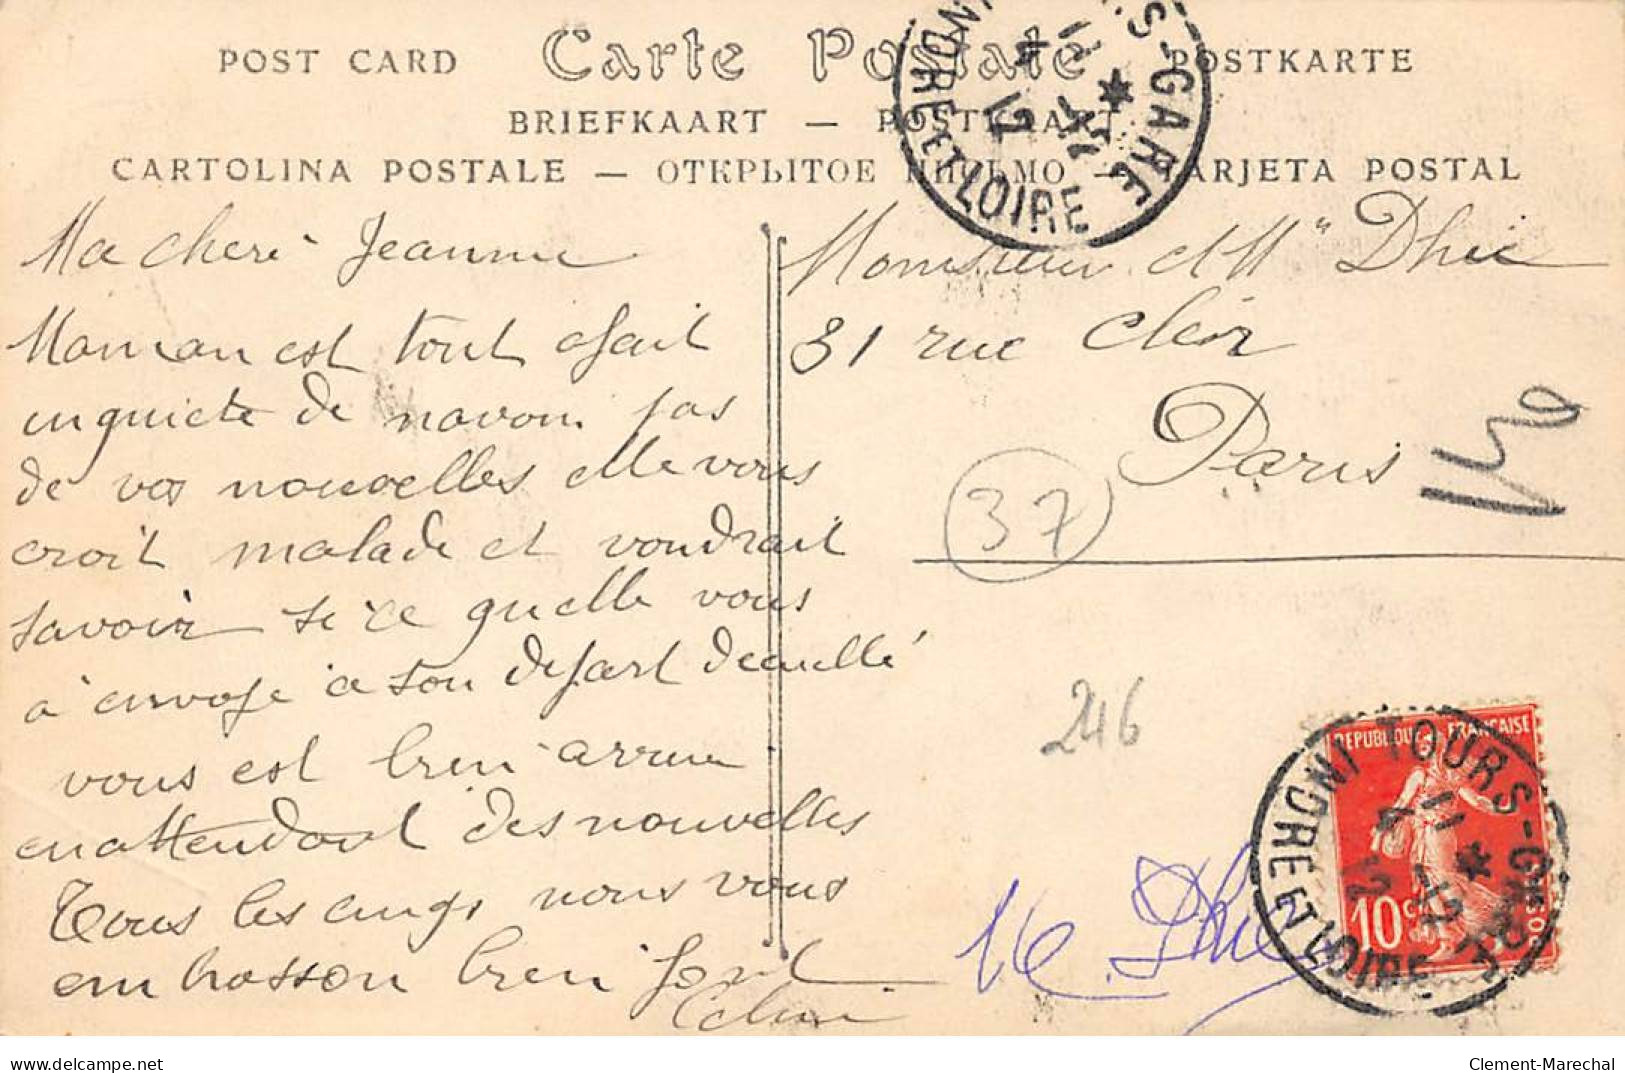 POST CARD Carte Postale POSTKARTE
BRIEFKAART — POSTKAART
CARTOLINA POSTALE — ОТКРЫТОЕ ПИСЬМО — TARJETA POSTAL
TOURS-GARE
INDRE ET LOIRE
Ma cheri Jeanne
Maman est tout afait
inquiete de navoir pas
de vos nouvelles elle vous
croit malade et voudrait
savoir si ce quelle vous
à envoye a son depart
vous est bien arrive
en attendant des nouvelles
Tous les nous vous
embrasson bien fort
Monsieur et Mme
31 rue Cler
Paris
37
246
REPUBLIQUE FRANÇAISE
10c
TOURS-GARE
INDRE ET LOIRE
delcampe.net
Clement-Marechal